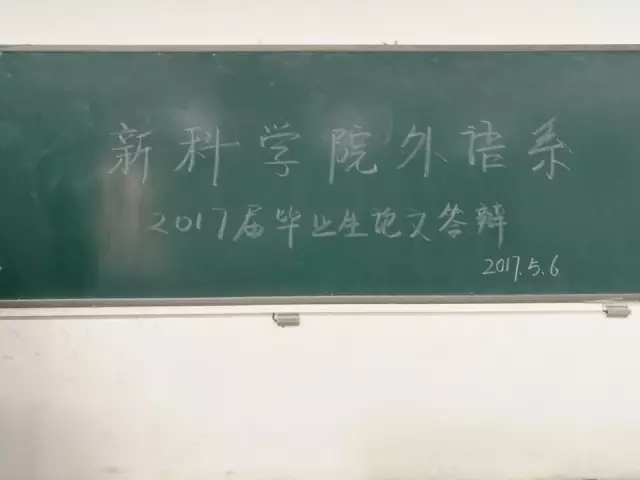 新科学院外语系
2017届毕业生论文答辩
2017.5.6